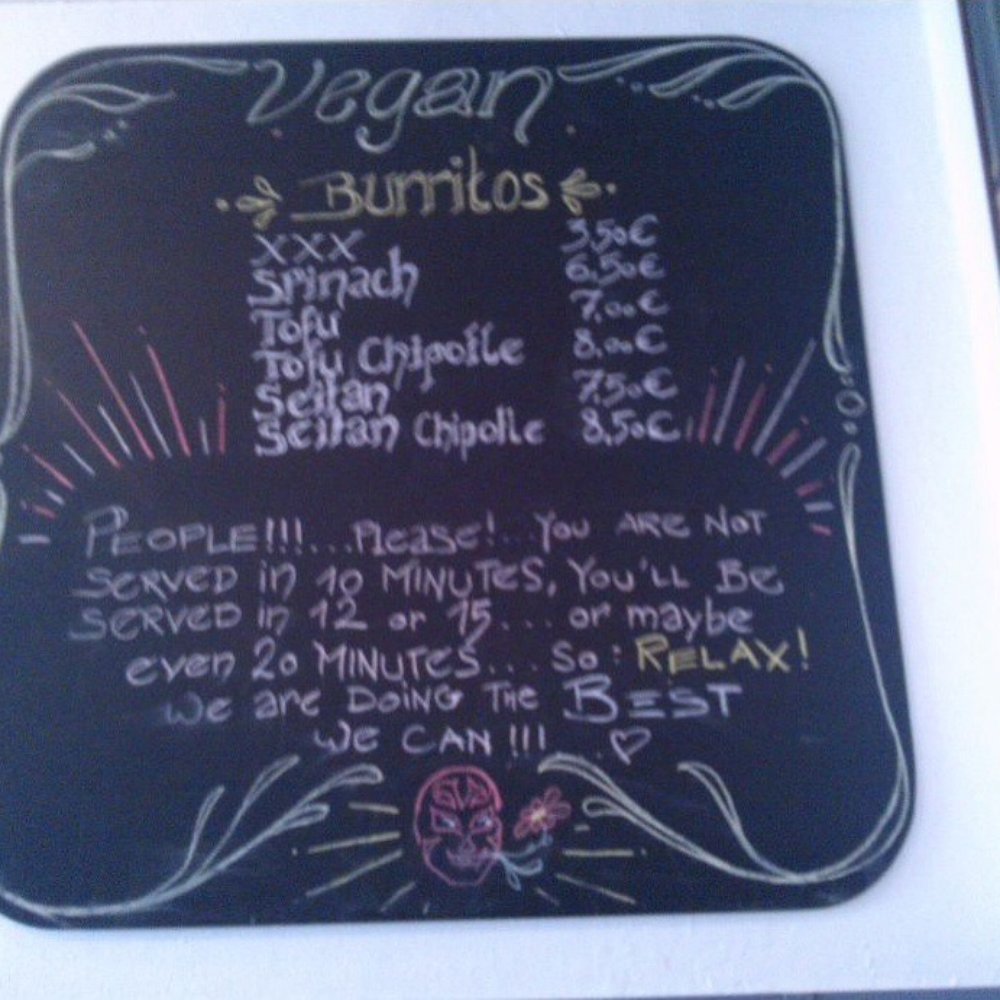 Vegan
Burritos
XXX 3,50€
Spinach 6,50€
Tofu 7,00€
Tofu Chipotle 8,00€
Seitan 7,50€
Seitan Chipotle 8,50€
PEOPLE!!!...Please!..You ARE NOT
SERVED in 10 MINUTES, You'LL BE
SERVED in 12 or 15... or maybe
even 20 MINUTES... So: RELAX!
We are DOING THE BEST
WE CAN!!! ♡